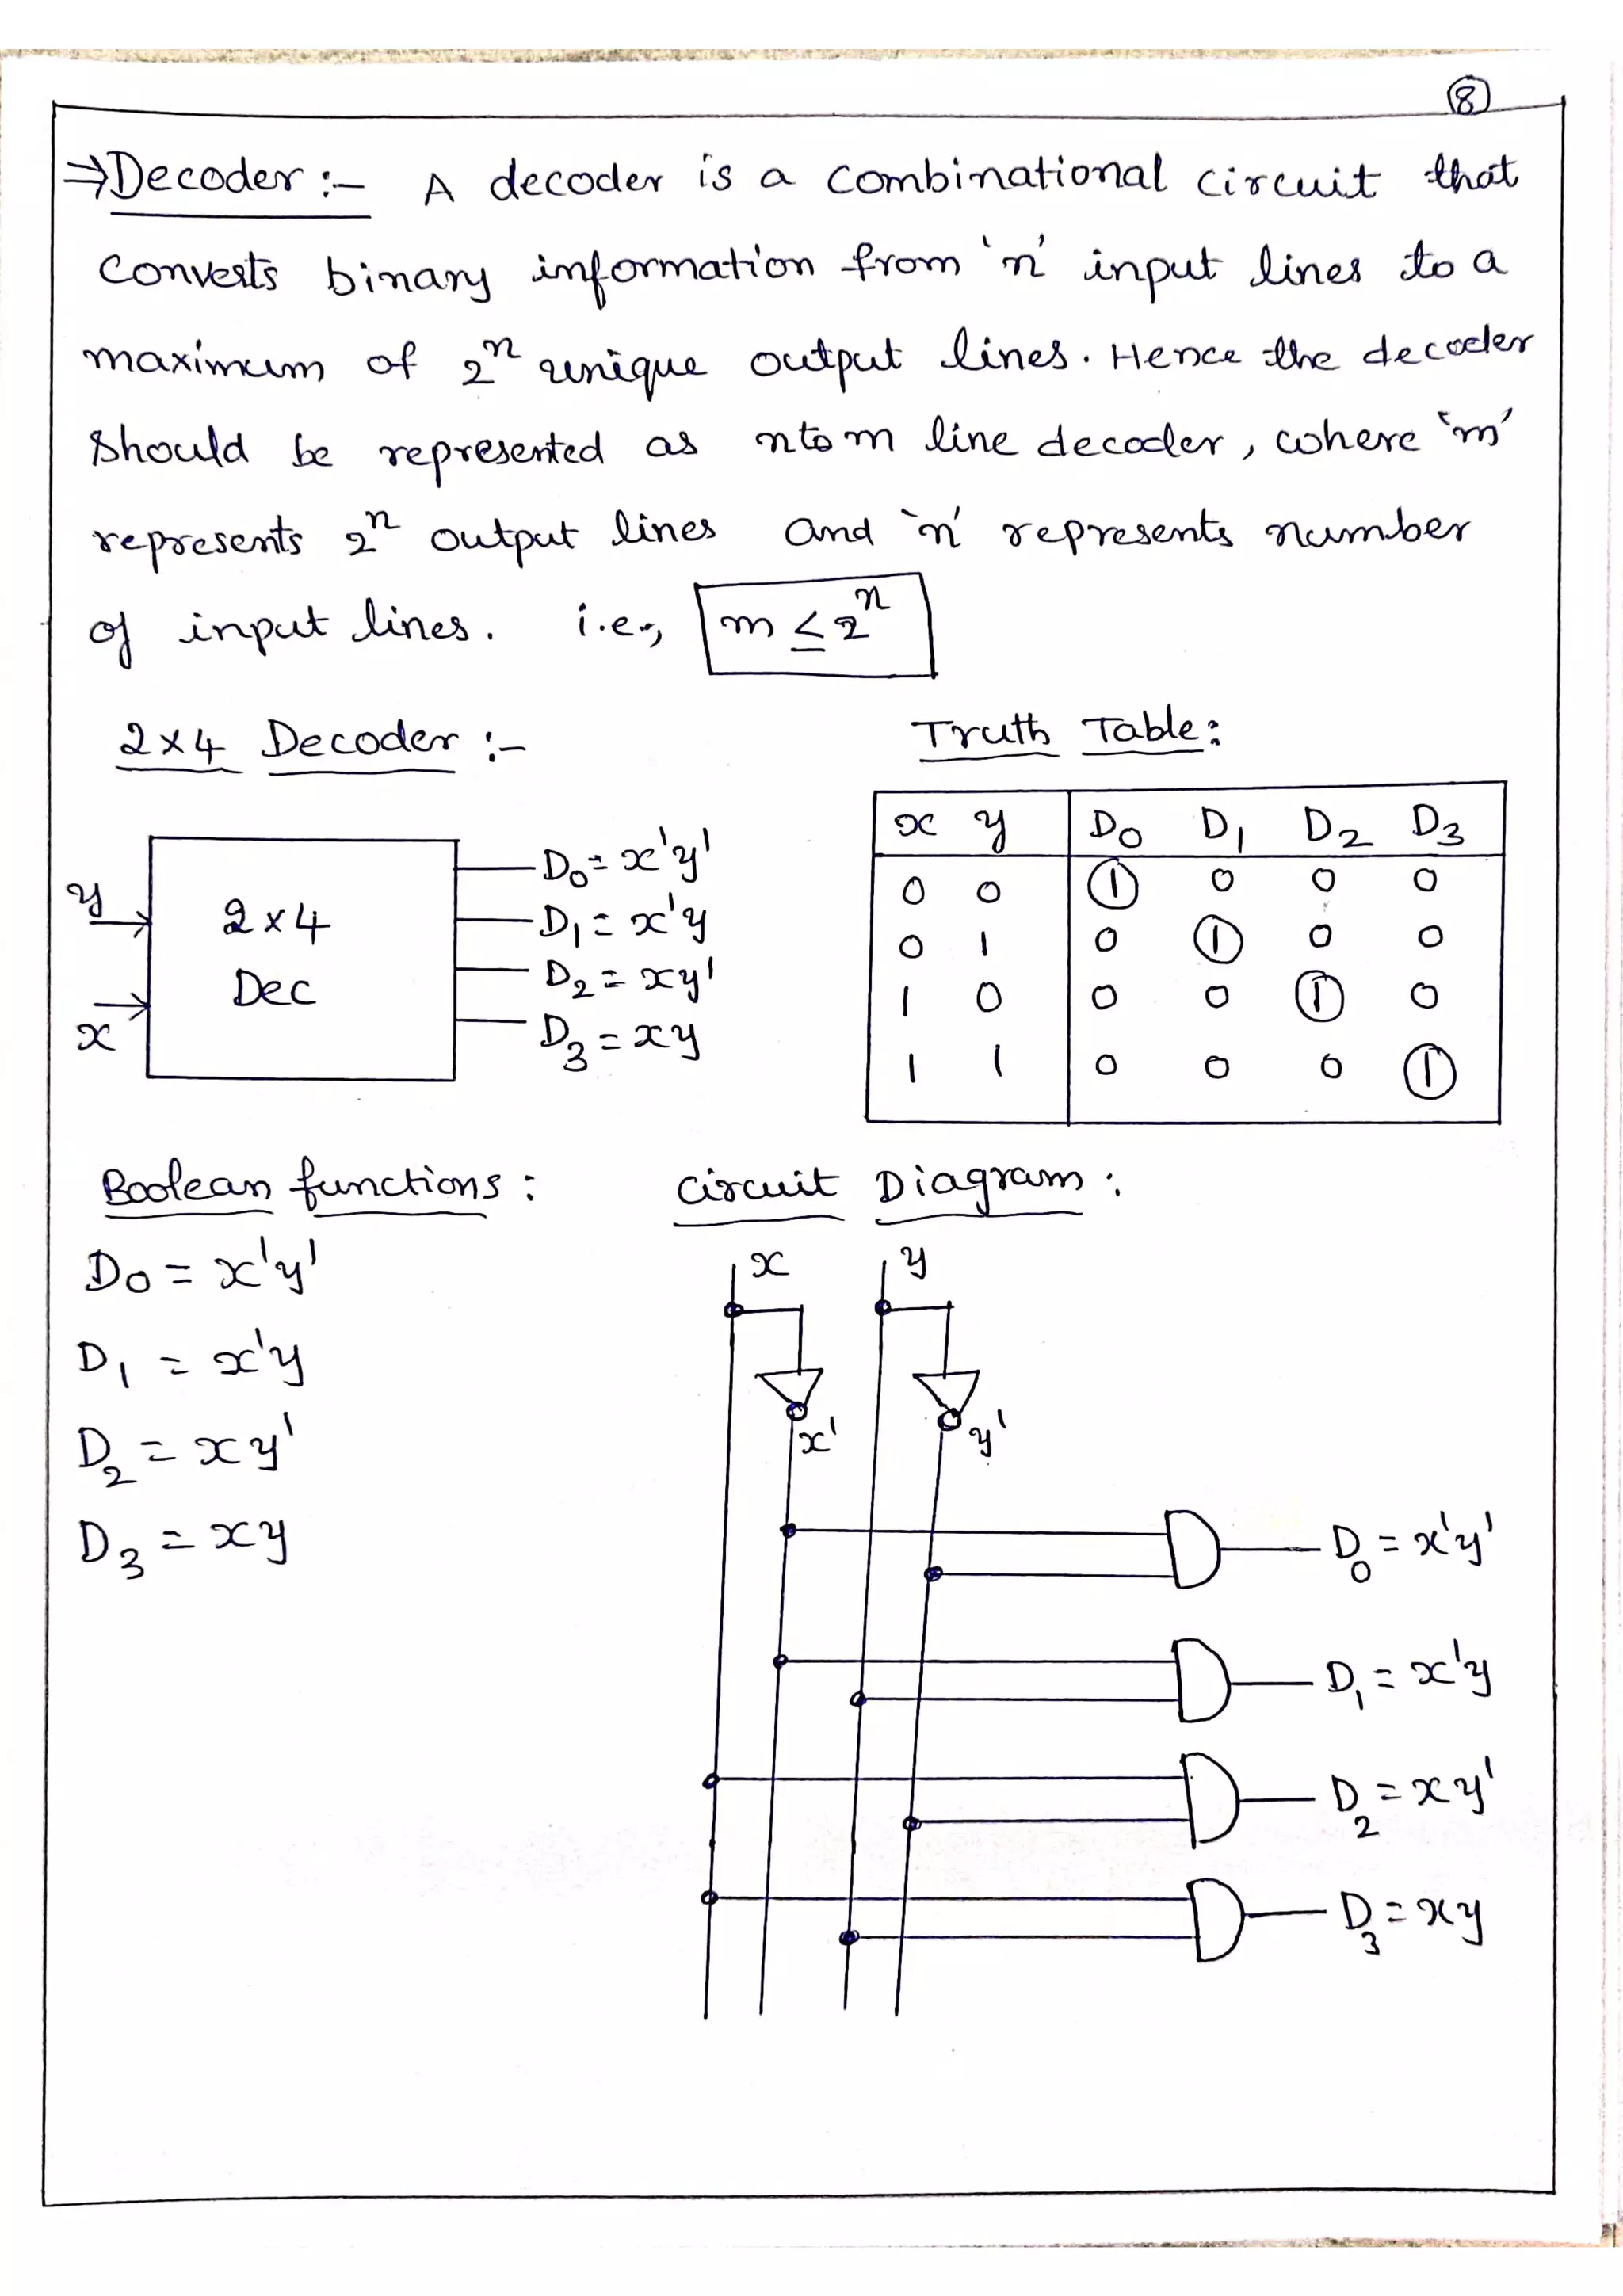 ⑧
⇒Decoder :- A decoder is a combinational circuit that
converts binary information from 'n' input lines to a
maximum of 2ⁿ unique output lines. Hence the decoder
should be represented as n to m line decoder, where 'm'
represents 2ⁿ output lines and 'n' represents number
of input lines. i.e., m ≤ 2ⁿ
2x4 Decoder :-
y
x
2x4
Dec
D₀ = x'y'
D₁ = x'y
D₂ = xy'
D₃ = xy
Truth Table:
x y D₀ D₁ D₂ D₃
0 0 ① 0 0 0
0 1 0 ① 0 0
1 0 0 0 ① 0
1 1 0 0 0 ①
Boolean functions :
D₀ = x'y'
D₁ = x'y
D₂ = xy'
D₃ = xy
Circuit Diagram :
x y
x' y'
D₀ = x'y'
D₁ = x'y
D₂ = xy'
D₃ = xy